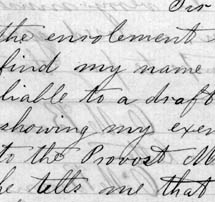 Sir
the enrolement
find my name
liable to a draft
showing my exem
to the Provost M
he tells me that